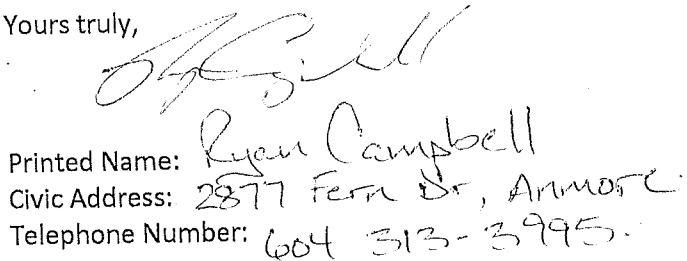 Yours truly,
Printed Name: Ryan Campbell
Civic Address: 2877 Fern Dr, Anmore
Telephone Number: 604 313-3995.